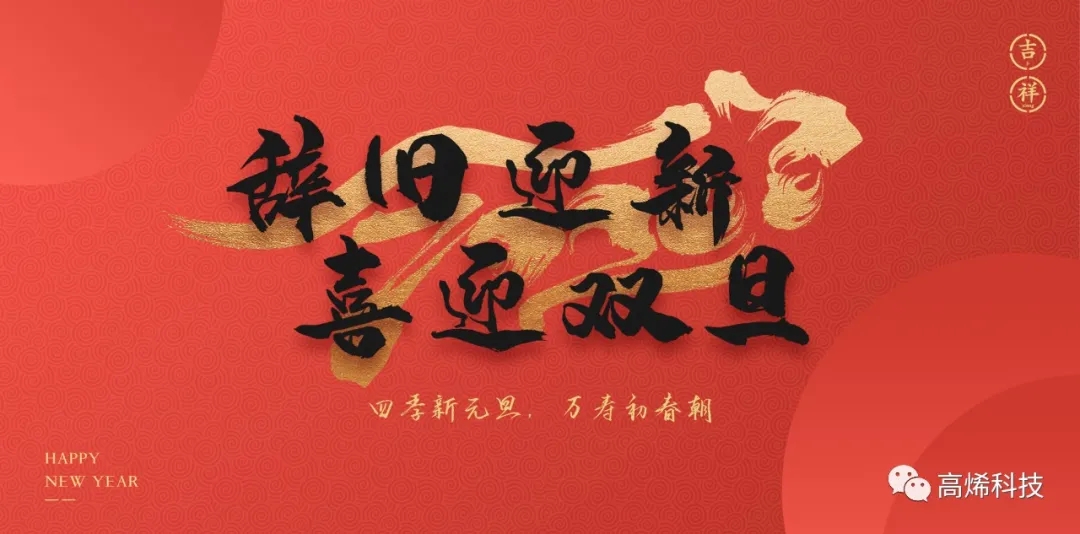 吉
祥
辞旧迎新
喜迎双旦
四季新元旦，万寿初春朝
HAPPY
NEW YEAR
高烯科技